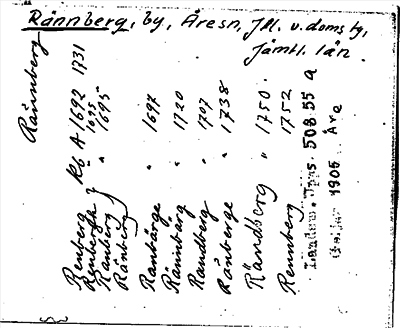 Rännberg, by, Åresn, Jtl. v. doms bg,
Jämtl. län
Rännberg
Renberg Kb A 1692 1731
Renbergh 1695
Ranberg " 1695
Ränberg
Ranbärge " 1697
Rännbärg " 1720
Randberg " 1727
Ränberge " 1738
Rändberg " 1750.
Rennberg 1752
508.55 a
1906 Åre